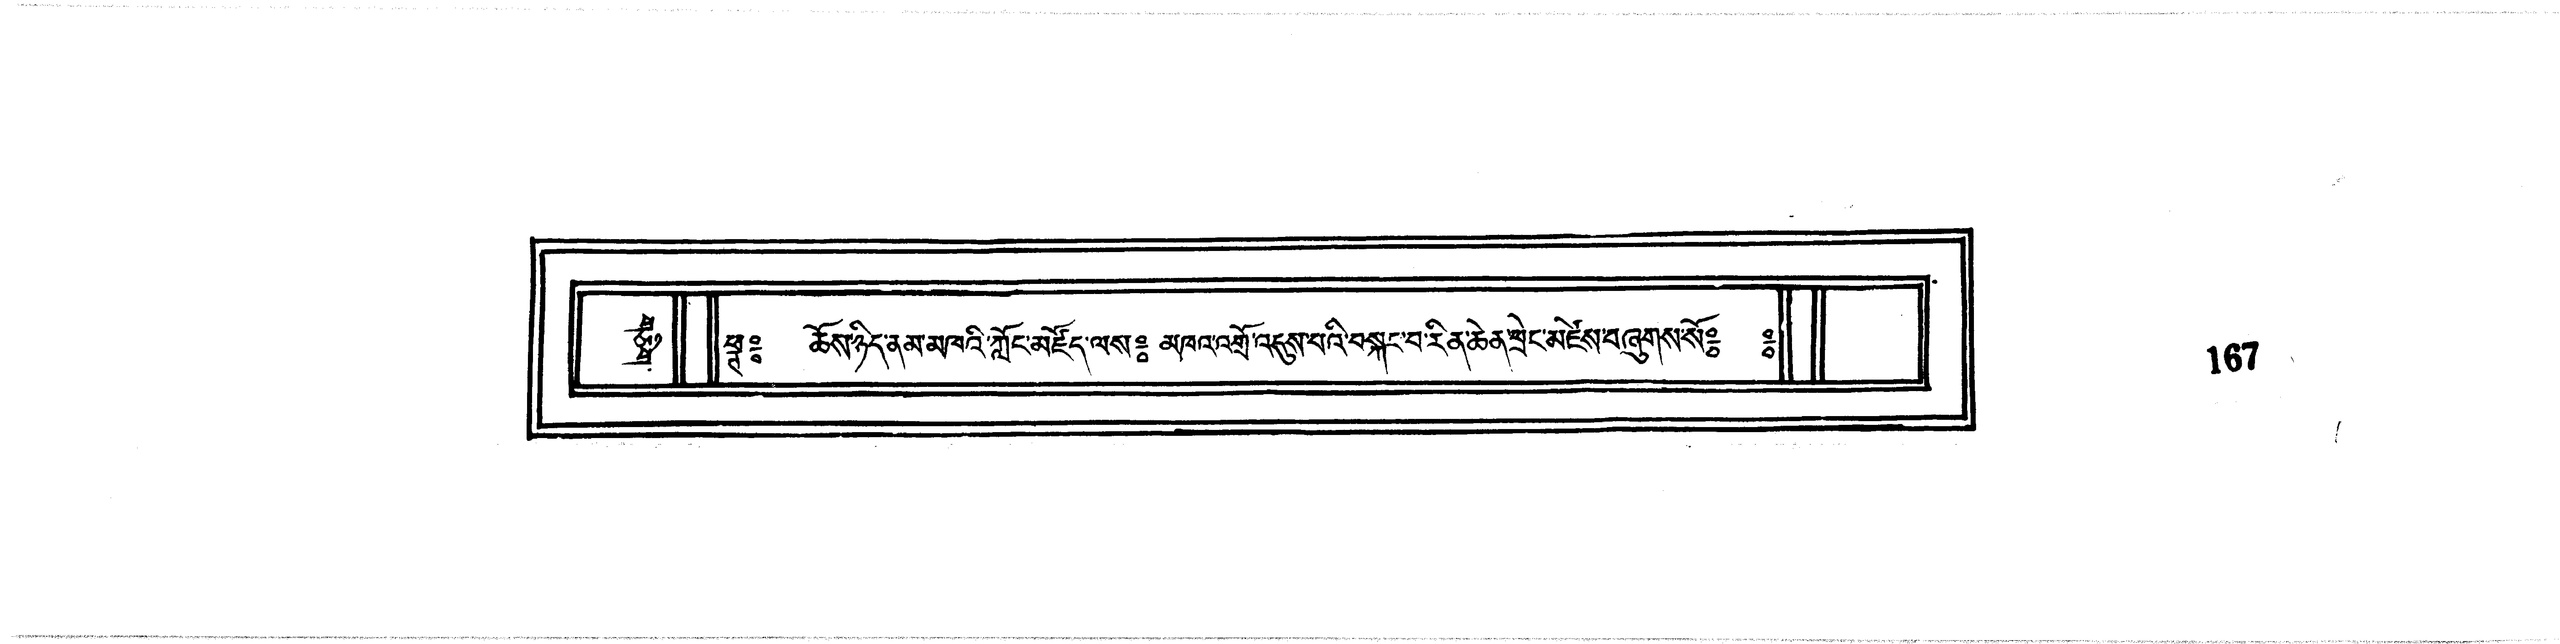 ཕྲ༔ ཆོས་ཉིད་ནམ་མཁའི་ཀློང་མཛོད་ལས༔ མཁའ་འགྲོ་འདུས་པའི་བསྐང་བ་རིན་ཆེན་ཕྲེང་མཛེས་བཞུགས་སོ༔ ༔
167